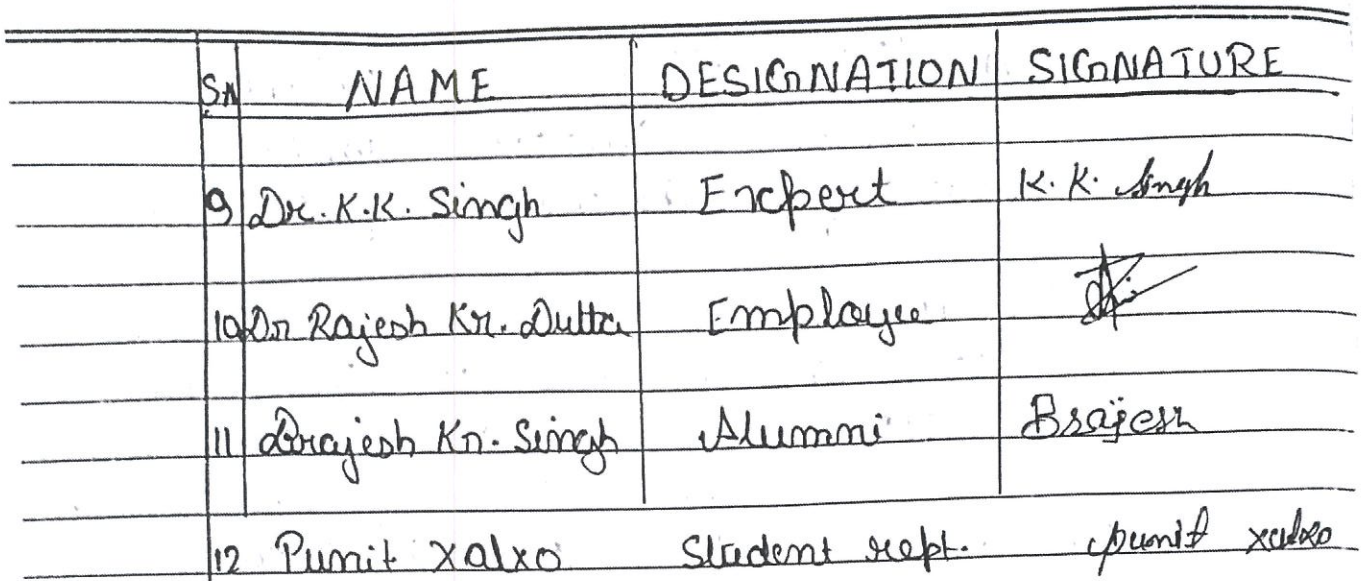 SN NAME DESIGNATION SIGNATURE
9 Dr. K.K. Singh Expert K. K. Singh
10 Dr Rajesh Kr. Dutta Employee
11 Brajesh Kr. Singh Alumni Brajesh
12 Punit Xalxo Student rept. Punit xalxo